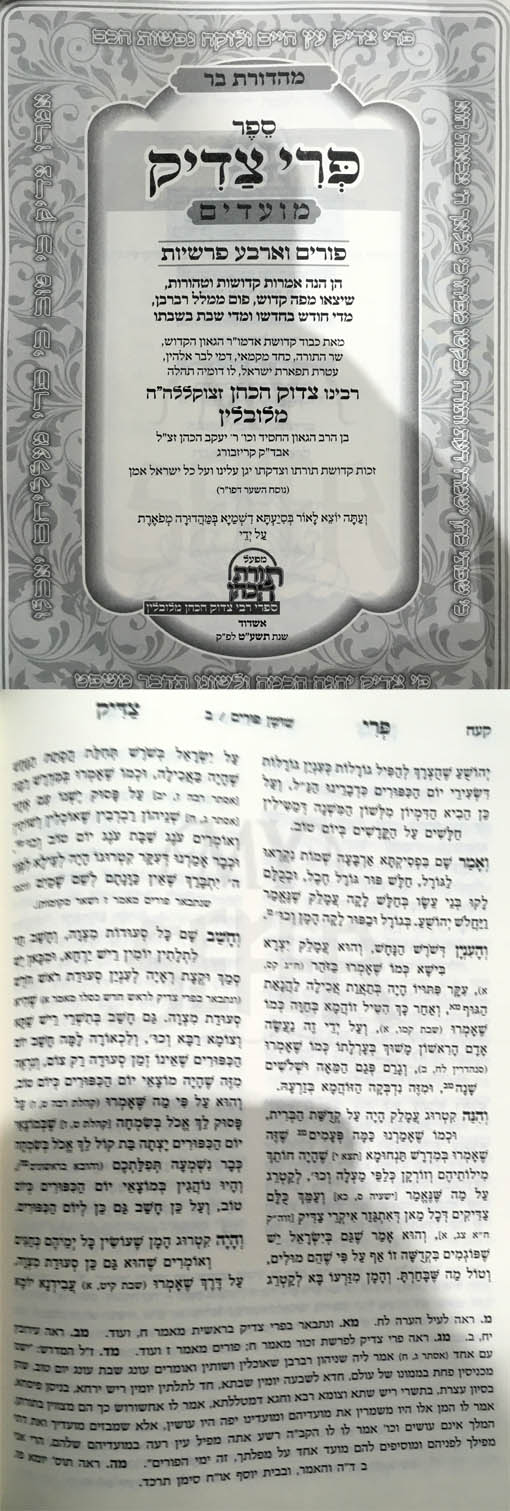 פרי צדיק עץ חיים ולוקח נפשות חכם
מהדורת בר
ספר
פְּרִי צַדִּיק
מועדים
פורים וארבע פרשיות
הן הנה אמרות קדושות וטהורות,
שיצאו מפה קדוש, פום ממלל רברבן,
מדי חודש בחדשו ומדי שבת בשבתו
מאת כבוד קדושת אדמו"ר הגאון הקדוש,
שר התורה, כחד מקמאי, דמי לבר אלהין,
עטרת תפארת ישראל, לו דומיה תהלה
רבינו צדוק הכהן זצוקללה"ה
מלובלין
בן הרב הגאון החסיד וכו' ר' יעקב הכהן זצ"ל
אבד"ק קריזבורג
זכות קדושת תורתו וצדקתו יגן עלינו ועל כל ישראל אמן
(נוסח השער דפו"ר)
וְעַתָּה יוֹצֵא לָאוֹר בְּסִיַּעְתָּא דִשְׁמַיָּא בְּמַהֲדוּרָה מְפֹאֶרֶת
עַל יְדֵי
מפעל
תורת
הכהן
ספרי רבי צדוק הכהן מלובלין
אשדוד
שנת תשע"ט לפ"ק
פי צדיק יהגה חכמה ולשונו תדבר משפט
קעח
פְּרִי
שושן פורים / ב
צַדִּיק
יְהוֹשֻׁעַ שֶׁהֻצְרַךְ לְהַפִּיל גּוֹרָלוֹת כְּעִנְיַן גּוֹרָלוֹת
דִּשְׂעִירֵי יוֹם הַכִּפּוּרִים כִּדְבָרֵינוּ הַנַּ"ל, וְעַל
כֵּן הֵבִיא הַדִּמְיוֹן מִלְּשׁוֹן הַמִּשְׁנָה דְּמַטִּילִין
חֲלָשִׁים עַל הַקֳּדָשִׁים בְּיוֹם טוֹב.
וְאָמַר שָׁם בִּפְסִיקְתָּא אַרְבָּעָה שֵׁמוֹת נִקְרְאוּ
לַגּוֹרָל, חֵלֶשׁ פּוּר גּוֹרָל חֶבֶל, וּבְכֻלָּם
לָקוּ בְּנֵי עֵשָׂו בְּחֵלֶשׁ לָקָה עֲמָלֵק שֶׁנֶּאֱמַר
וַיַּחֲלֹשׁ יְהוֹשֻׁעַ. בְּגוֹרָל וּבְפוּר לָקָה הָמָן וכו'
וְהָעִנְיָן דְּשֹׁרֶשׁ הַנָּחָשׁ, וְהוּא עֲמָלֵק יִצְרָא
בִּישָׁא כְּמוֹ שֶׁאָמְרוּ בַּזֹּהַר (ח"ג קס,
א), עִקַּר פִּתּוּיוֹ הָיָה בְּתַאֲוַת אֲכִילָה לַהֲנָאַת
הַגּוּף, וְאַחַר כָּךְ הִטִּיל זוּהֲמָא בְּחַוָּה כְּמוֹ
שֶׁאָמְרוּ (שבת קמו, א), וְעַל יְדֵי זֶה נַעֲשָׂה
אָדָם הָרִאשׁוֹן מָשׁוּךְ בְּעָרְלָתוֹ כְּמוֹ שֶׁאָמְרוּ
(סנהדרין לח, ב), וְגָרַם פְּגַם הַמֵּאָה וּשְׁלֹשִׁים
שָׁנָה, וּמִזֶּה נִדְבְּקָה הַזּוּהֲמָא בְּזַרְעָהּ.
וְהִנֵּה קִטְרוּג עֲמָלֵק הָיָה עַל קְדֻשַּׁת הַבְּרִית,
וּכְמוֹ שֶׁאָמַרְנוּ כַּמָּה פְּעָמִים שֶׁזֶּה
שֶׁאָמְרוּ בְּמִדְרַשׁ תַּנְחוּמָא [תצא י] שֶׁהָיָה חוֹתֵךְ
מִילוֹתֵיהֶם וְזוֹרְקָן כְּלַפֵּי מַעְלָה וכו', לְקַטְרֵג
עַל מַה שֶּׁנֶּאֱמַר [ישעיה ס, כא] וְעַמֵּךְ כֻּלָּם
צַדִּיקִים דְּכָל מַאן דְּאִתְגְּזַר אִיקְרֵי צַדִּיק (זוה"ק
ח"א צג, א), וְהוּא אָמַר שֶׁגַּם בְּיִשְׂרָאֵל יֵשׁ
שֶׁפּוֹגְמִים בִּקְדֻשָּׁה זוֹ אַף עַל פִּי שֶׁהֵם מוּלִים,
וְטוֹל מַה שֶּׁבָּחַרְתָּ. וְהָמָן מִזַּרְעוֹ בָּא לְקַטְרֵג
עַל יִשְׂרָאֵל בְּשֹׁרֶשׁ תְּחִלַּת הֲסָתַת הַנָּחָשׁ
שֶׁהָיָה בַּאֲכִילָה, וּכְמוֹ שֶׁאָמְרוּ בַּמִּדְרָשׁ רַבָּה
[אסתר רבה ז, יב] עַל פָּסוּק יֶשְׁנוֹ עַם אֶחָד
[אסתר ג, ח] שֶׁשִּׁנֵּיהוֹן רַבְרְבִין שֶׁאוֹכְלִין וְשׁוֹתִין
וְאוֹמְרִים עֹנֶג שַׁבָּת עֹנֶג יוֹם טוֹב
וּכְבָר אָמַרְנוּ דְּעִקַּר קִטְרוּגוֹ הָיָה לְעֵילָּא לִפְנֵי
ה' יִתְבָּרַךְ שֶׁאֵין כַּוָּנָתָם לְשֵׁם שָׁמַיִם (וכמו
שנתבאר פורים מאמר ז ושאר מקומות).
וְחָשַׁב שָׁם כָּל סְעוּדוֹת מִצְוָה, וְחָשַׁב חַד
לִתְלָתִין יוֹמִין רֵישׁ יַרְחָא, וּמִכָּאן יֵשׁ
סֶמֶךְ וּקְצָת רְאָיָה לְעִנְיַן סְעוּדַת רֹאשׁ חֹדֶשׁ
(ונתבאר בפרי צדיק לראש חודש כסלו מאמר א) שֶׁהִיא
סְעוּדַת מִצְוָה. גַּם חָשַׁב בְּתִשְׁרֵי רֵישׁ שַׁתָּא
וְצוֹמָא רַבָּא וכו'. וְלִכְאוֹרָה לָמָּה חָשַׁב יוֹם
הַכִּפּוּרִים שֶׁאֵינוֹ זְמַן סְעוּדָה רַק צוֹם, וְנִרְאֶה
מִזֶּה שֶׁהָיָה מוֹצָאֵי יוֹם הַכִּפּוּרִים כְּיוֹם טוֹב,
וְהוּא עַל פִּי מַה שֶּׁאָמְרוּ (קהלת רבה ט, ז) עַל
פָּסוּק לֵךְ אֱכֹל בְּשִׂמְחָה [קהלת ט, ז] שֶׁבְּמוֹצָאֵי
יוֹם הַכִּפּוּרִים יָצְתָה בַּת קוֹל לֵךְ אֱכֹל בְּשִׂמְחָה
כְּבָר נִשְׁמְעָה תְּפִלַּתְכֶם (והובא בראשונים),
וְהָיוּ נוֹהֲגִין בְּמוֹצָאֵי יוֹם הַכִּפּוּרִים כְּיוֹם
טוֹב, וְעַל כֵּן חָשַׁב גַּם כֵּן לְיוֹם הַכִּפּוּרִים.
וְהָיָה קִטְרוּג הָמָן שֶׁעוֹשִׂין כָּל יְמֵיהֶם בְּחַגִּים
וְאוֹמְרִים שֶׁהוּא גַּם כֵּן סְעוּדַת מִצְוָה,
עַל דֶּרֶךְ שֶׁאָמְרוּ (שבת קיט, א) עֲבִידְנָא יוֹמָא
מ. ראה לעיל הערה לח. מא. ונתבאר בפרי צדיק בראשית מאמר ח, ועוד. מב. ראה עירובין
יח, ב. מג. ראה פרי צדיק לפרשת זכור מאמר ח; פורים מאמר ז ועוד. מד. ז"ל המדרש: "ישנו
עם אחד (אסתר ג, ח) אמר ליה שניהון רברבן שאוכלין ושותין ואומרים עונג שבת עונג יום טוב,
מכניסין פחת בממונו של עולם, חדא לשבעה יומין שבתא, חד לתלתין יומין ריש ירחא, בניסן פיסחא,
בסיון עצרת, בתשרי ריש שתא וצומא רבא וחגא דמטללתא, אמר לו אחשורוש כך הם מצווין בתורתן,
אמר לו המן אלו היו משמרין את מועדיהם ומועדינו יפה היו עושין, אלא שמבזים מועדיך ואת דתי
המלך אינם עושים וכו' אמר לו לו הקב"ה רשע אתה מפיל עין רעה במועדיהם שלהם, הרי אני
מפילך לפניהם ומוסיפים להם מועד אחד על מפלתך, זה ימי הפורים". מה. ראה תוס' יומא
ב ד"ה והאמר, ובבית יוסף או"ח סימן תרכד.